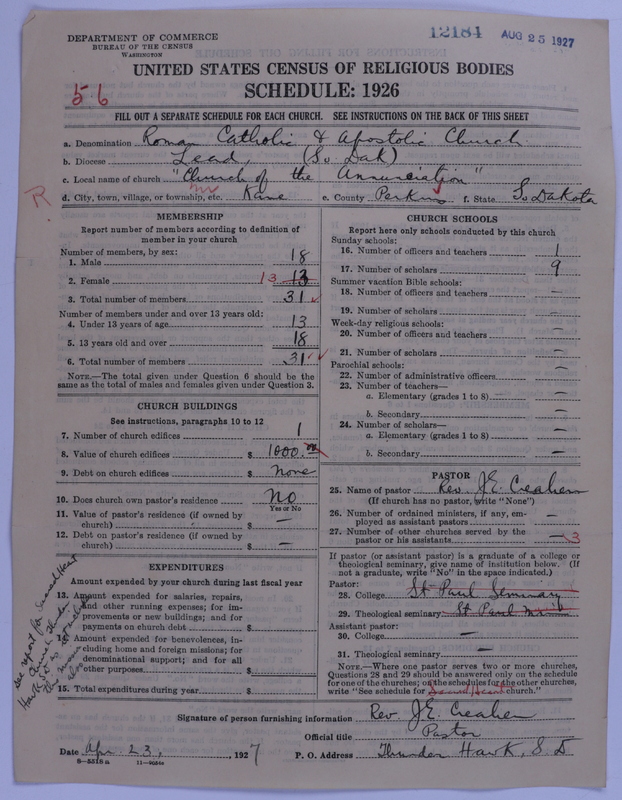 12184 AUG 25 1927
DEPARTMENT OF COMMERCE
BUREAU OF THE CENSUS
WASHINGTON
UNITED STATES CENSUS OF RELIGIOUS BODIES
SCHEDULE: 1926
56
FILL OUT A SEPARATE SCHEDULE FOR EACH CHURCH. SEE INSTRUCTIONS ON THE BACK OF THIS SHEET
a. Denomination Roman Catholic & Apostolic Church
b. Diocese Lead, (So Dak)
c. Local name of church "Church of the Annunciation"
R
d. City, town, village, or township, etc. Kane e. County Perkins f. State So Dakota
MEMBERSHIP
Report number of members according to definition of
member in your church
Number of members, by sex:
1. Male 18
2. Female 13 13
3. Total number of members 31
Number of members under and over 13 years old:
4. Under 13 years of age 13
5. 13 years old and over 18
6. Total number of members 31
NOTE.—The total given under Question 6 should be the
same as the total of males and females given under Question 3.
CHURCH BUILDINGS
See instructions, paragraphs 10 to 12
7. Number of church edifices 1
8. Value of church edifices $ 1000.00
9. Debt on church edifices $ None
10. Does church own pastor's residence No
Yes or No
11. Value of pastor's residence (if owned by
church) $ —
12. Debt on pastor's residence (if owned by
church) $ —
EXPENDITURES
Amount expended by your church during last fiscal year
13. Amount expended for salaries, repairs,
and other running expenses; for im-
provements or new buildings; and for
payments on church debt $
14. Amount expended for benevolences, in-
cluding home and foreign missions; for
denominational support; and for all
other purposes $
15. Total expenditures during year $
see report for Sacred Heart
Church Thunder
Hawk
CHURCH SCHOOLS
Report here only schools conducted by this church
Sunday schools:
16. Number of officers and teachers 1
17. Number of scholars 9
Summer vacation Bible schools:
18. Number of officers and teachers —
19. Number of scholars —
Week-day religious schools:
20. Number of officers and teachers —
21. Number of scholars —
Parochial schools:
22. Number of administrative officers —
23. Number of teachers—
a. Elementary (grades 1 to 8) —
b. Secondary —
24. Number of scholars—
a. Elementary (grades 1 to 8) —
b. Secondary —
PASTOR
25. Name of pastor Rev. J.E. Crealien
(If church has no pastor, write "None")
26. Number of ordained ministers, if any, em-
ployed as assistant pastors —
27. Number of other churches served by the
pastor or his assistants — 3
If pastor (or assistant pastor) is a graduate of a college or
theological seminary, give name of institution below. (If
not a graduate, write "No" in the space indicated.)
Pastor:
28. College St Paul Seminary
29. Theological seminary St Paul Minn
Assistant pastor:
30. College —
31. Theological seminary —
NOTE.—Where one pastor serves two or more churches,
Questions 28 and 29 should be answered only on the schedule
for one of the churches; on the schedules for the other churches,
write "See schedule for Sacred Heart church."
Signature of person furnishing information Rev. J.E. Crealien
Official title Pastor
Date Apr. 23, 1927 P. O. Address Thunder Hawk, S. D
8—5518a 11—9034